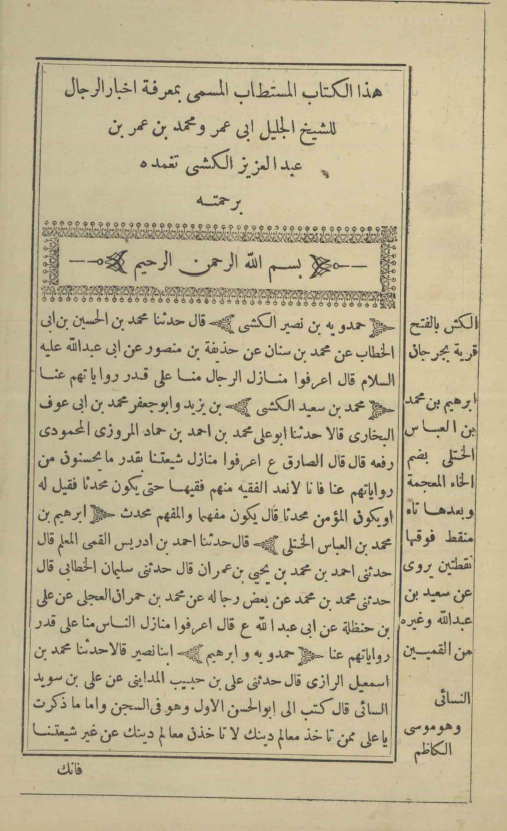 هذا الكتاب المستطاب المسمى بمعرفة اخبار الرجال
للشيخ الجليل ابى عمر ومحمد بن عمر بن
عبد العزيز الكشى تغمده
برحمته
بسم الله الرحمن الرحيم
حمدويه بن نصير الكشى قال حدثنا محمد بن الحسين بن ابى
الخطاب عن محمد بن سنان عن حذيفة بن منصور عن ابى عبدالله عليه
السلام قال اعرفوا منازل الرجال منا على قدر رواياتهم عنا
محمد بن سعيد الكشى بن يزيد وابوجعفر محمد بن ابى عوف
البخارى قالا حدثنا ابوعلى محمد بن احمد بن حماد المروزى المحمودى
رفعه قال قال الصارق ع اعرفوا منازل شيعتنا بقدر ما يحسنون من
رواياتهم عنا فانا لانعد الفقيه منهم فقيها حتى يكون محدثا فقيل له
اويكون المؤمن محدثا قال يكون مفهما والمفهم محدث ابرهيم بن
محمد بن العباس الختلى قال حدثنا احمد بن ادريس القمى المعلم قال
حدثنى احمد بن محمد بن يحيى بن عمران قال حدثنى سليمان الخطابى قال
حدثنى محمد بن محمد عن بعض رجاله عن محمد بن حمران العجلى عن على
بن حنظلة عن ابى عبد الله ع قال اعرفوا منازل الناس منا على قدر
رواياتهم عنا حمدويه وابرهيم ابنا نصير قالا حدثنا محمد بن
اسمعيل الرازى قال حدثنى على بن حبيب المداينى عن على بن سويد
السائى قال كتب الى ابوالحسن الاول وهو فى السجن واما ما ذكرت
يا على ممن تاخذ معالم دينك لا تاخذن معالم دينك عن غير شيعتنا
فانك
الكش بالفتح
قرية بجرجان
ابرهيم بن محمد
بن العباس
الختلى بضم
الخاء المعجمة
وبعدها تاء
منقط فوقها
نقطتين يروى
عن سعيد بن
عبدالله وغيره
من القميين
النسائى
وهو موسى
الكاظم